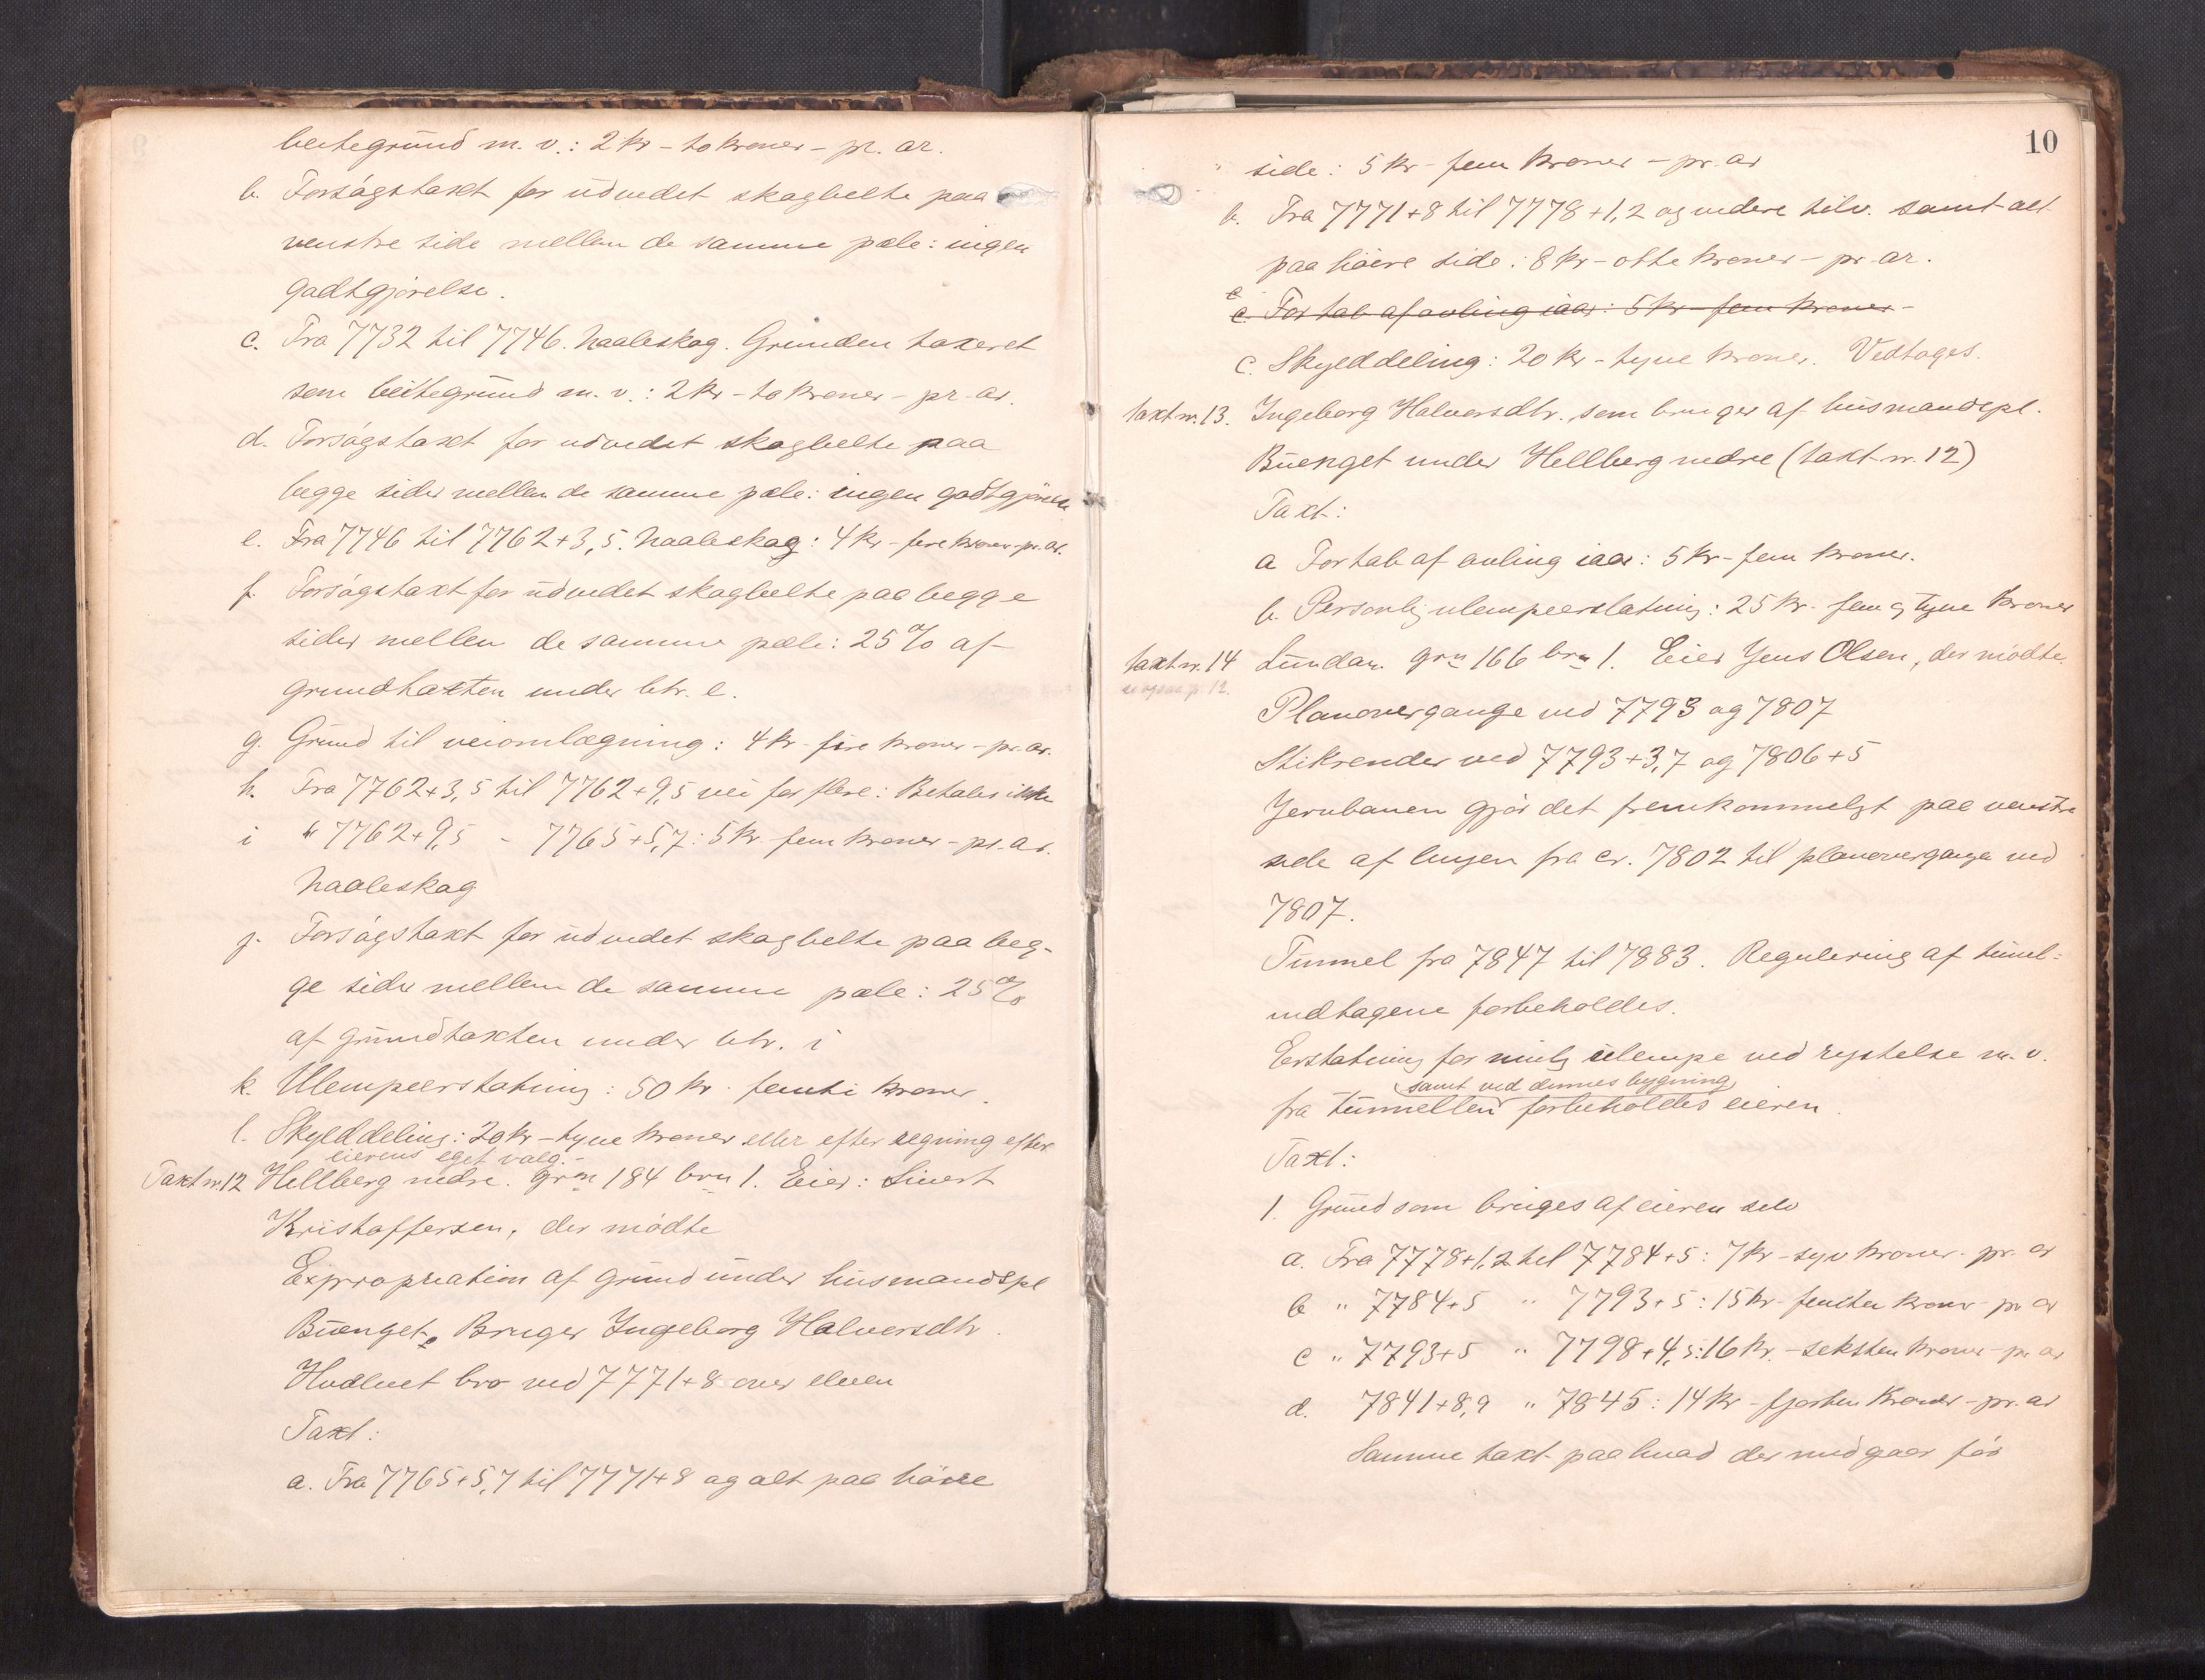 beitegrund m. v.: 2 kr - to kroner - pr. ar.
b. Forsøgstaxt for udvidet skogbelte paa
venstre side mellem de samme pæle: ingen
godtgjørelse.
c. Fra 7732 til 7746. Naaleskog. Grunden taxeret
som beitegrund m. v.: 2 kr - to kroner - pr. ar.
d. Forsøgstaxt for udvidet skogbelte paa
begge sider mellem de samme pæle: ingen godtgjørelse
e. Fra 7746 til 7762+3,5. Naaleskog: 4 kr - fire kroner - pr. ar.
f. Forsøgstaxt for udvidet skogbelte paa begge
sider mellem de samme pæle: 25 % af
grundtaxten under litr. e.
g. Grund til veiomlægning: 4 kr - fire kroner - pr. ar.
h. Fra 7762+3,5 til 7762+9,5 vei for flere: Betales ikke
i " 7762+9,5 - 7765+5,7: 5 kr - fem kroner - pr. ar.
Naaleskog
j. Forsøgstaxt for udvidet skogbelte paa beg-
ge sider mellem de samme pæle: 25 %
af grundtaxten under litr. i
k. Ulempeerstatning: 50 kr - femti kroner.
l. Skylddeling: 20 kr - tyve kroner eller efter regning efter
eierens eget valg.-
Taxt nr. 12 Hellberg nedre. grn 184 brn 1. Eier: Sivert
Kristoffersen, der mødte
Expropriation af grund under husmandspl
Buenget. Bruger Ingeborg Halvorsdtr.
Hvælvet bro ved 7771+8 over elven
Taxt:
a. Fra 7765+5,7 til 7771+8 og alt paa høire
10
side: 5 kr - fem kroner - pr. ar
b. Fra 7771+8 til 7778+1,2 og videre tilv. samt alt
paa høire side: 8 kr - otte kroner - pr. ar.
c. For tab af avling iaar: 5 kr - fem kroner -
c. Skylddeling: 20 kr - tyve kroner. Vedtages.
taxt nr. 13. Ingeborg Halvorsdtr. som bruger af husmandspl.
Buenget under Hellberg nedre (taxt nr. 12)
Taxt:
a For tab af avling iaar: 5 kr - fem kroner.
b. Personlig ulempeerstatning: 25 kr - fem og tyve kroner
taxt nr. 14 Lundar. grn 166 brn 1. Eier Jens Olsen, der mødte.
se ogsaa p. 12.
Planovergange ved 7793 og 7807
Stikrender ved 7793+3,7 og 7806+5
Jernbanen gjør det fremkommeligt paa venstre
side af linjen fra cr. 7802 til planovergange ved
7807.
Tunnel fra 7847 til 7883. Regulering af tunel-
indtagene forbeholdes.
Erstatning for mulig ulempe ved rystelse m. v.
samt ved dennes bygning
fra tunnellen forbeholdes eieren.
Taxt:
1. Grund som bruges af eieren selv
a. Fra 7778+1,2 til 7784+5: 7 kr - syv kroner - pr. ar
b " 7784+5 " 7793+5: 15 kr - femten kroner - pr ar
c " 7793+5 " 7798+4,5: 16 kr. - seksten kroner - pr. ar
d. 7841+8,9 " 7845: 14 kr - fjorten kroner - pr. ar
Samme taxt paa hvad der medgaar før